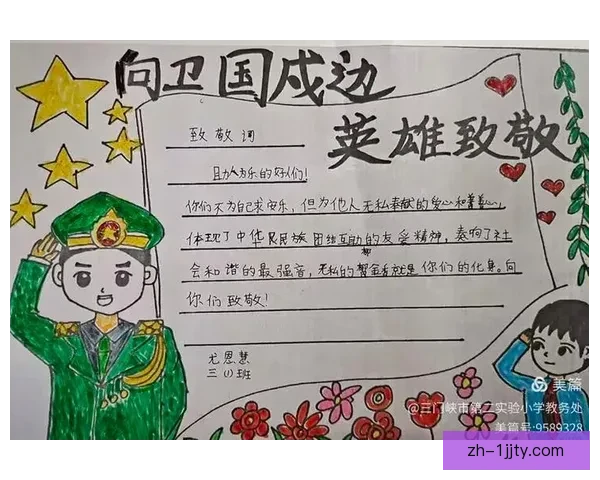 向卫国戍边
英雄致敬
致敬词
助人为乐的好人们！
你们不为自己求安乐，但为他人无私奉献的爱心和善意，
体现了中华民族团结互助的友爱精神，奏响了社
会和谐的最强音，无私的奉献就是你们的化身。向
你们致敬！
尤恩慧
三（1）班
美篇
@三门峡市第二实验小学教务处
美篇号:9589328
zh-1jjty.com